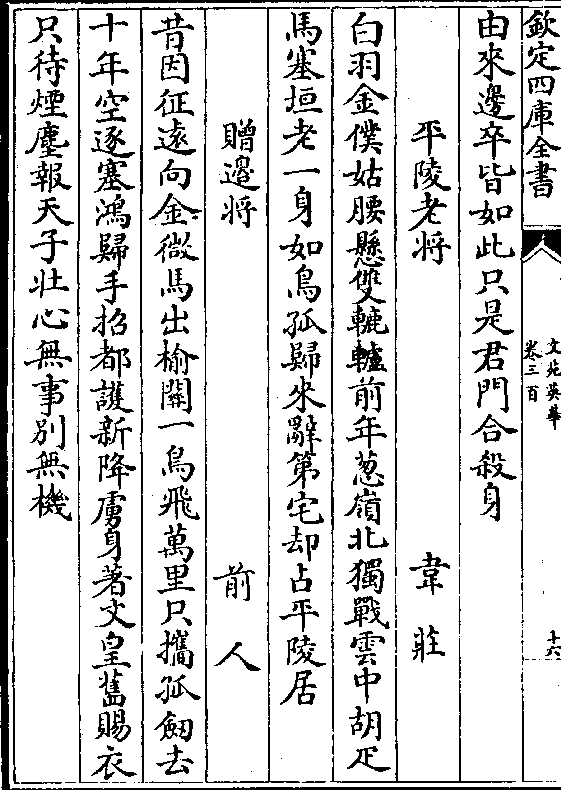 欽定四庫全書
文苑英華
卷三百
十六
由來邊卒皆如此只是君門合殺身
平陵老將 韋莊
白羽金僕姑腰懸雙轆轤前年葱嶺北獨戰雲中胡疋
馬塞垣老一身如鳥孤歸來辭第宅却占平陵居
贈邊將 前人
昔因征遠向金微馬出榆關一鳥飛萬里只攜孤劒去
十年空逐塞鴻歸手招都護新降虜身著文皇舊賜衣
只待煙塵報天子壯心無事別無機